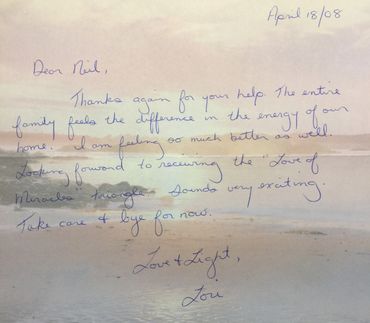 April 18/08
Dear Neil,
Thanks again for your help. The entire
family feels the difference in the energy of our
home. I am feeling so much better as well.
Looking forward to receiving the "Love of
Miracles" triangle. Sounds very exciting.
Take care & bye for now.
Love & Light,
Lori